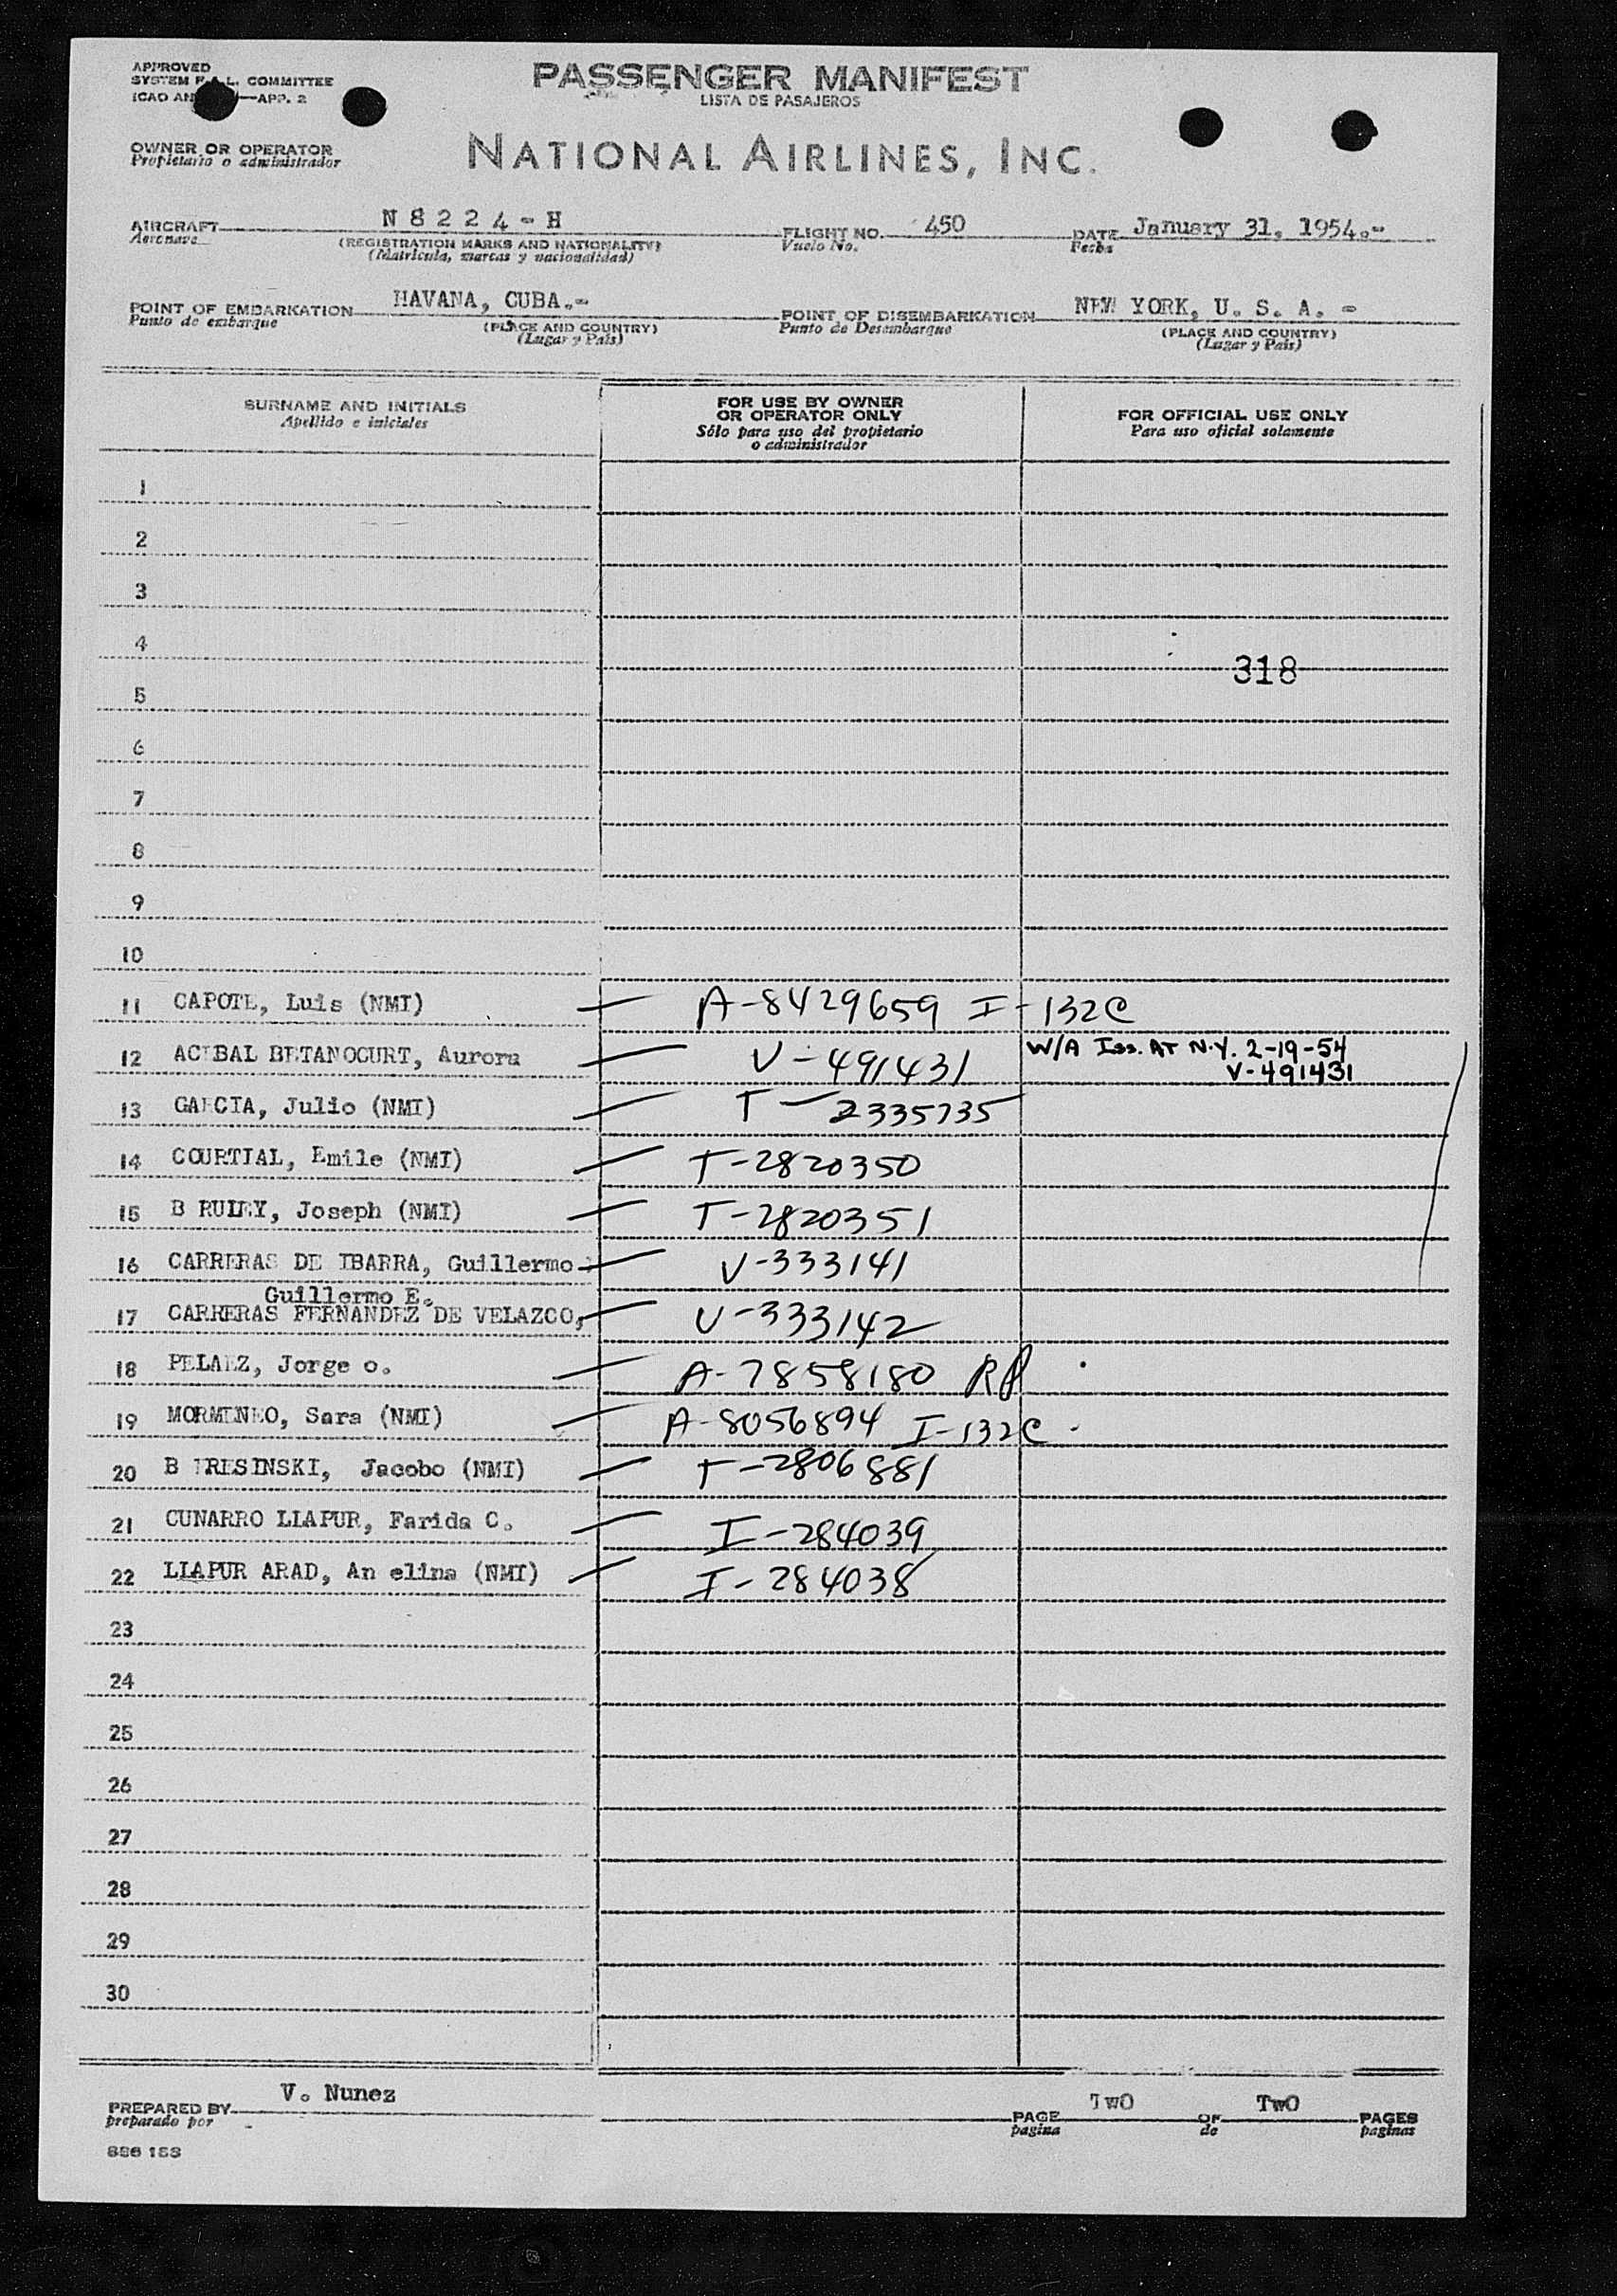 APPROVED
SYSTEM F.A.L. COMMITTEE
ICAO AN —APP. 2
PASSENGER MANIFEST
LISTA DE PASAJEROS
OWNER OR OPERATOR
Propietario o administrador
NATIONAL AIRLINES, INC.
AIRCRAFT N 8 2 2 4 - H FLIGHT NO. 450 DATE January 31, 1954.-
Aeronave (REGISTRATION MARKS AND NATIONALITY) Vuelo No. Fecha
(Matrícula, marcas y nacionalidad)
POINT OF EMBARKATION HAVANA, CUBA.- POINT OF DISEMBARKATION NEW YORK, U. S. A. -
Punto de embarque (PLACE AND COUNTRY) Punto de Desembarque (PLACE AND COUNTRY)
(Lugar y País) (Lugar y País)
SURNAME AND INITIALS
Apellido e iniciales
FOR USE BY OWNER
OR OPERATOR ONLY
Sólo para uso del propietario
o administrador
FOR OFFICIAL USE ONLY
Para uso oficial solamente
1
2
3
4
318
5
6
7
8
9
10
11 CAPOTE, Luis (NMI) — A-8429659 I-132C
12 ACEBAL BETANOCURT, Aurora — V-491431 W/A Iss. AT N.Y. 2-19-54
V-491431
13 GARCIA, Julio (NMI) — T-2335735
14 COURTIAL, Emile (NMI) — T-2820350
15 B RULEY, Joseph (NMI) — T-2820351
16 CARRERAS DE IBARRA, Guillermo — V-333141
Guillermo E.
17 CARRERAS FERNANDEZ DE VELAZCO, — V-333142
18 PELAEZ, Jorge o. — A-7858180 RP
19 MORMENEO, Sara (NMI) — A-8056894 I-132C
20 B TRESINSKI, Jacobo (NMI) — T-2806881
21 CUNARRO LLAPUR, Farida C. — I-284039
22 LLAPUR ARAD, An elina (NMI) — I-284038
23
24
25
26
27
28
29
30
PREPARED BY V. Nunez PAGE TwO OF TwO PAGES
preparado por pagina de paginas
886 188